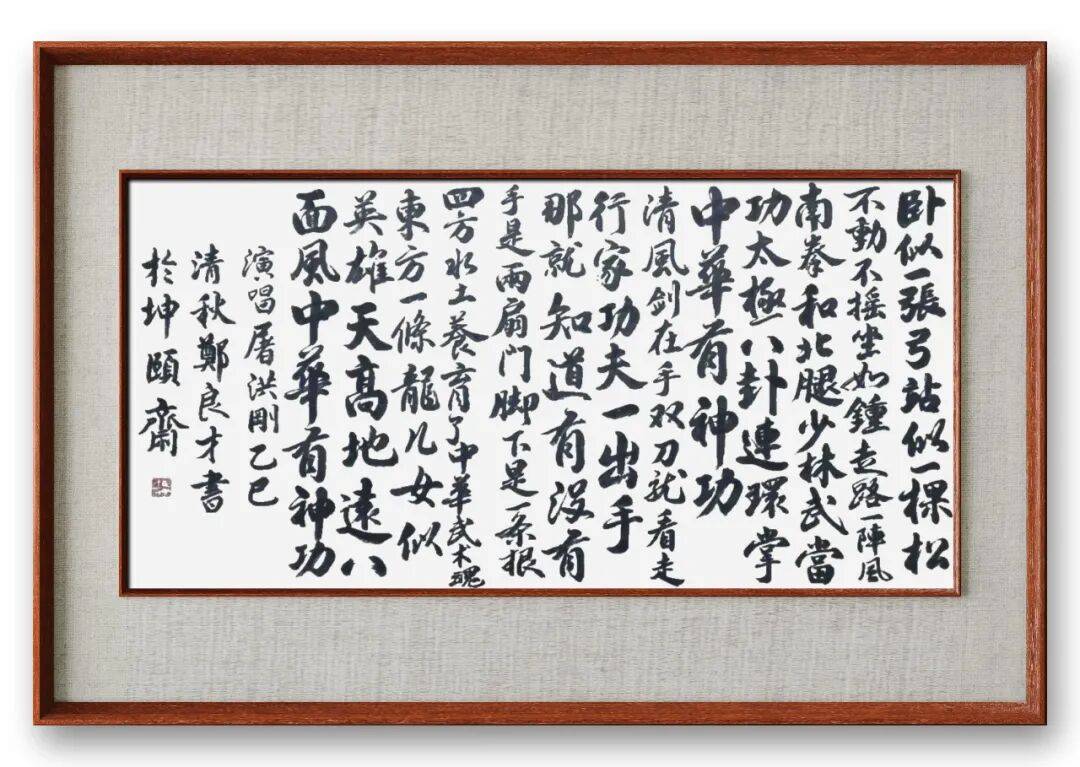 卧似一張弓站似一棵松
不動不摇坐如鍾走路一陣風
南拳和北腿少林武當
功太極八卦連環掌
中華有神功
清風剑在手双刀就看走
行家功夫一出手
那就知道有没有
手是兩扇门脚下是一条根
四方水土养育了中華武术魂
東方一條龍儿女似
英雄天高地遠八
面風中華有神功
演唱屠洪剛乙巳
清秋鄭良才書
於坤頤齋